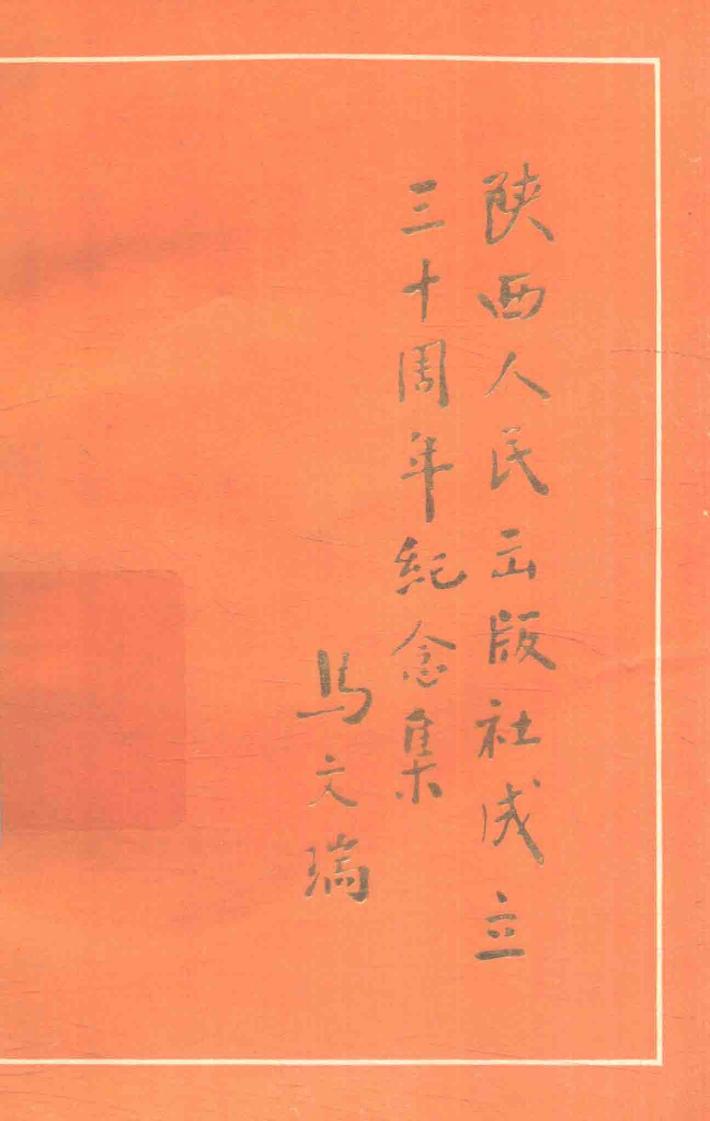 陕西人民出版社成立
三十周年纪念集
马文瑞